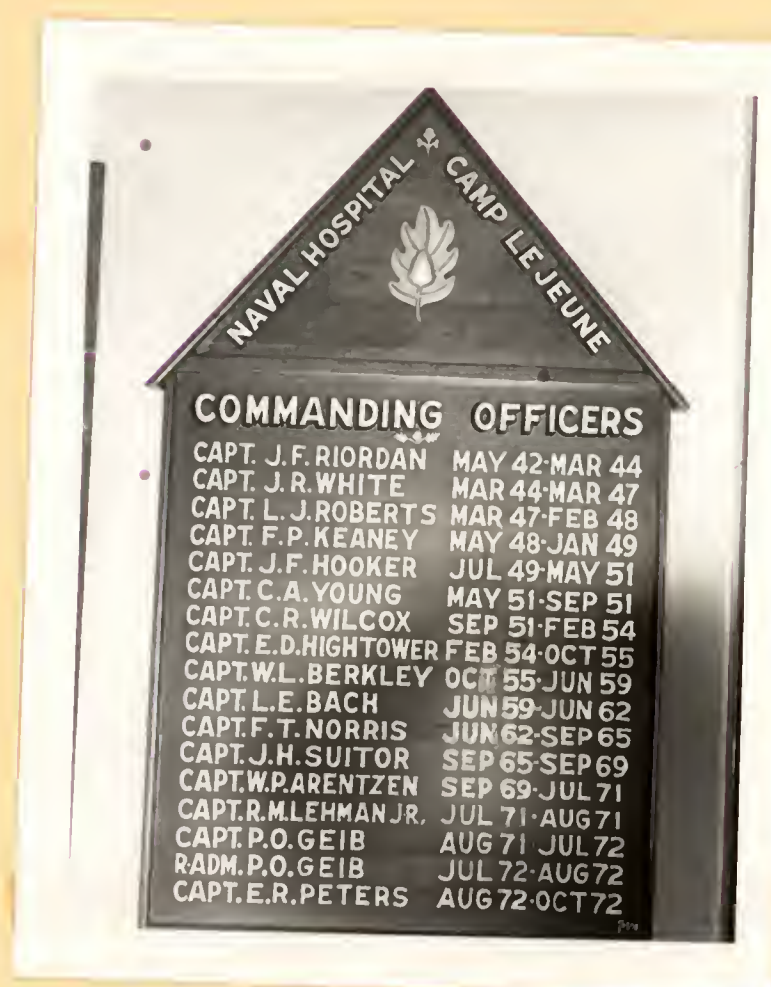 NAVAL HOSPITAL CAMP LEJEUNE
COMMANDING OFFICERS
CAPT. J.F. RIORDAN MAY 42-MAR 44
CAPT. J.R. WHITE MAR 44-MAR 47
CAPT. L.J. ROBERTS MAR 47-FEB 48
CAPT. F.P. KEANEY MAY 48-JAN 49
CAPT. J.F. HOOKER JUL 49-MAY 51
CAPT. C.A. YOUNG MAY 51-SEP 51
CAPT. C.R. WILCOX SEP 51-FEB 54
CAPT. E.D. HIGHTOWER FEB 54-OCT 55
CAPT. W.L. BERKLEY OCT 55-JUN 59
CAPT. L.E. BACH JUN 59-JUN 62
CAPT. F.T. NORRIS JUN 62-SEP 65
CAPT. J.H. SUITOR SEP 65-SEP 69
CAPT. W.P. ARENTZEN SEP 69-JUL 71
CAPT. R.M. LEHMAN JR. JUL 71-AUG 71
CAPT. P.O. GEIB AUG 71-JUL 72
R-ADM. P.O. GEIB JUL 72-AUG 72
CAPT. E.R. PETERS AUG 72-OCT 72